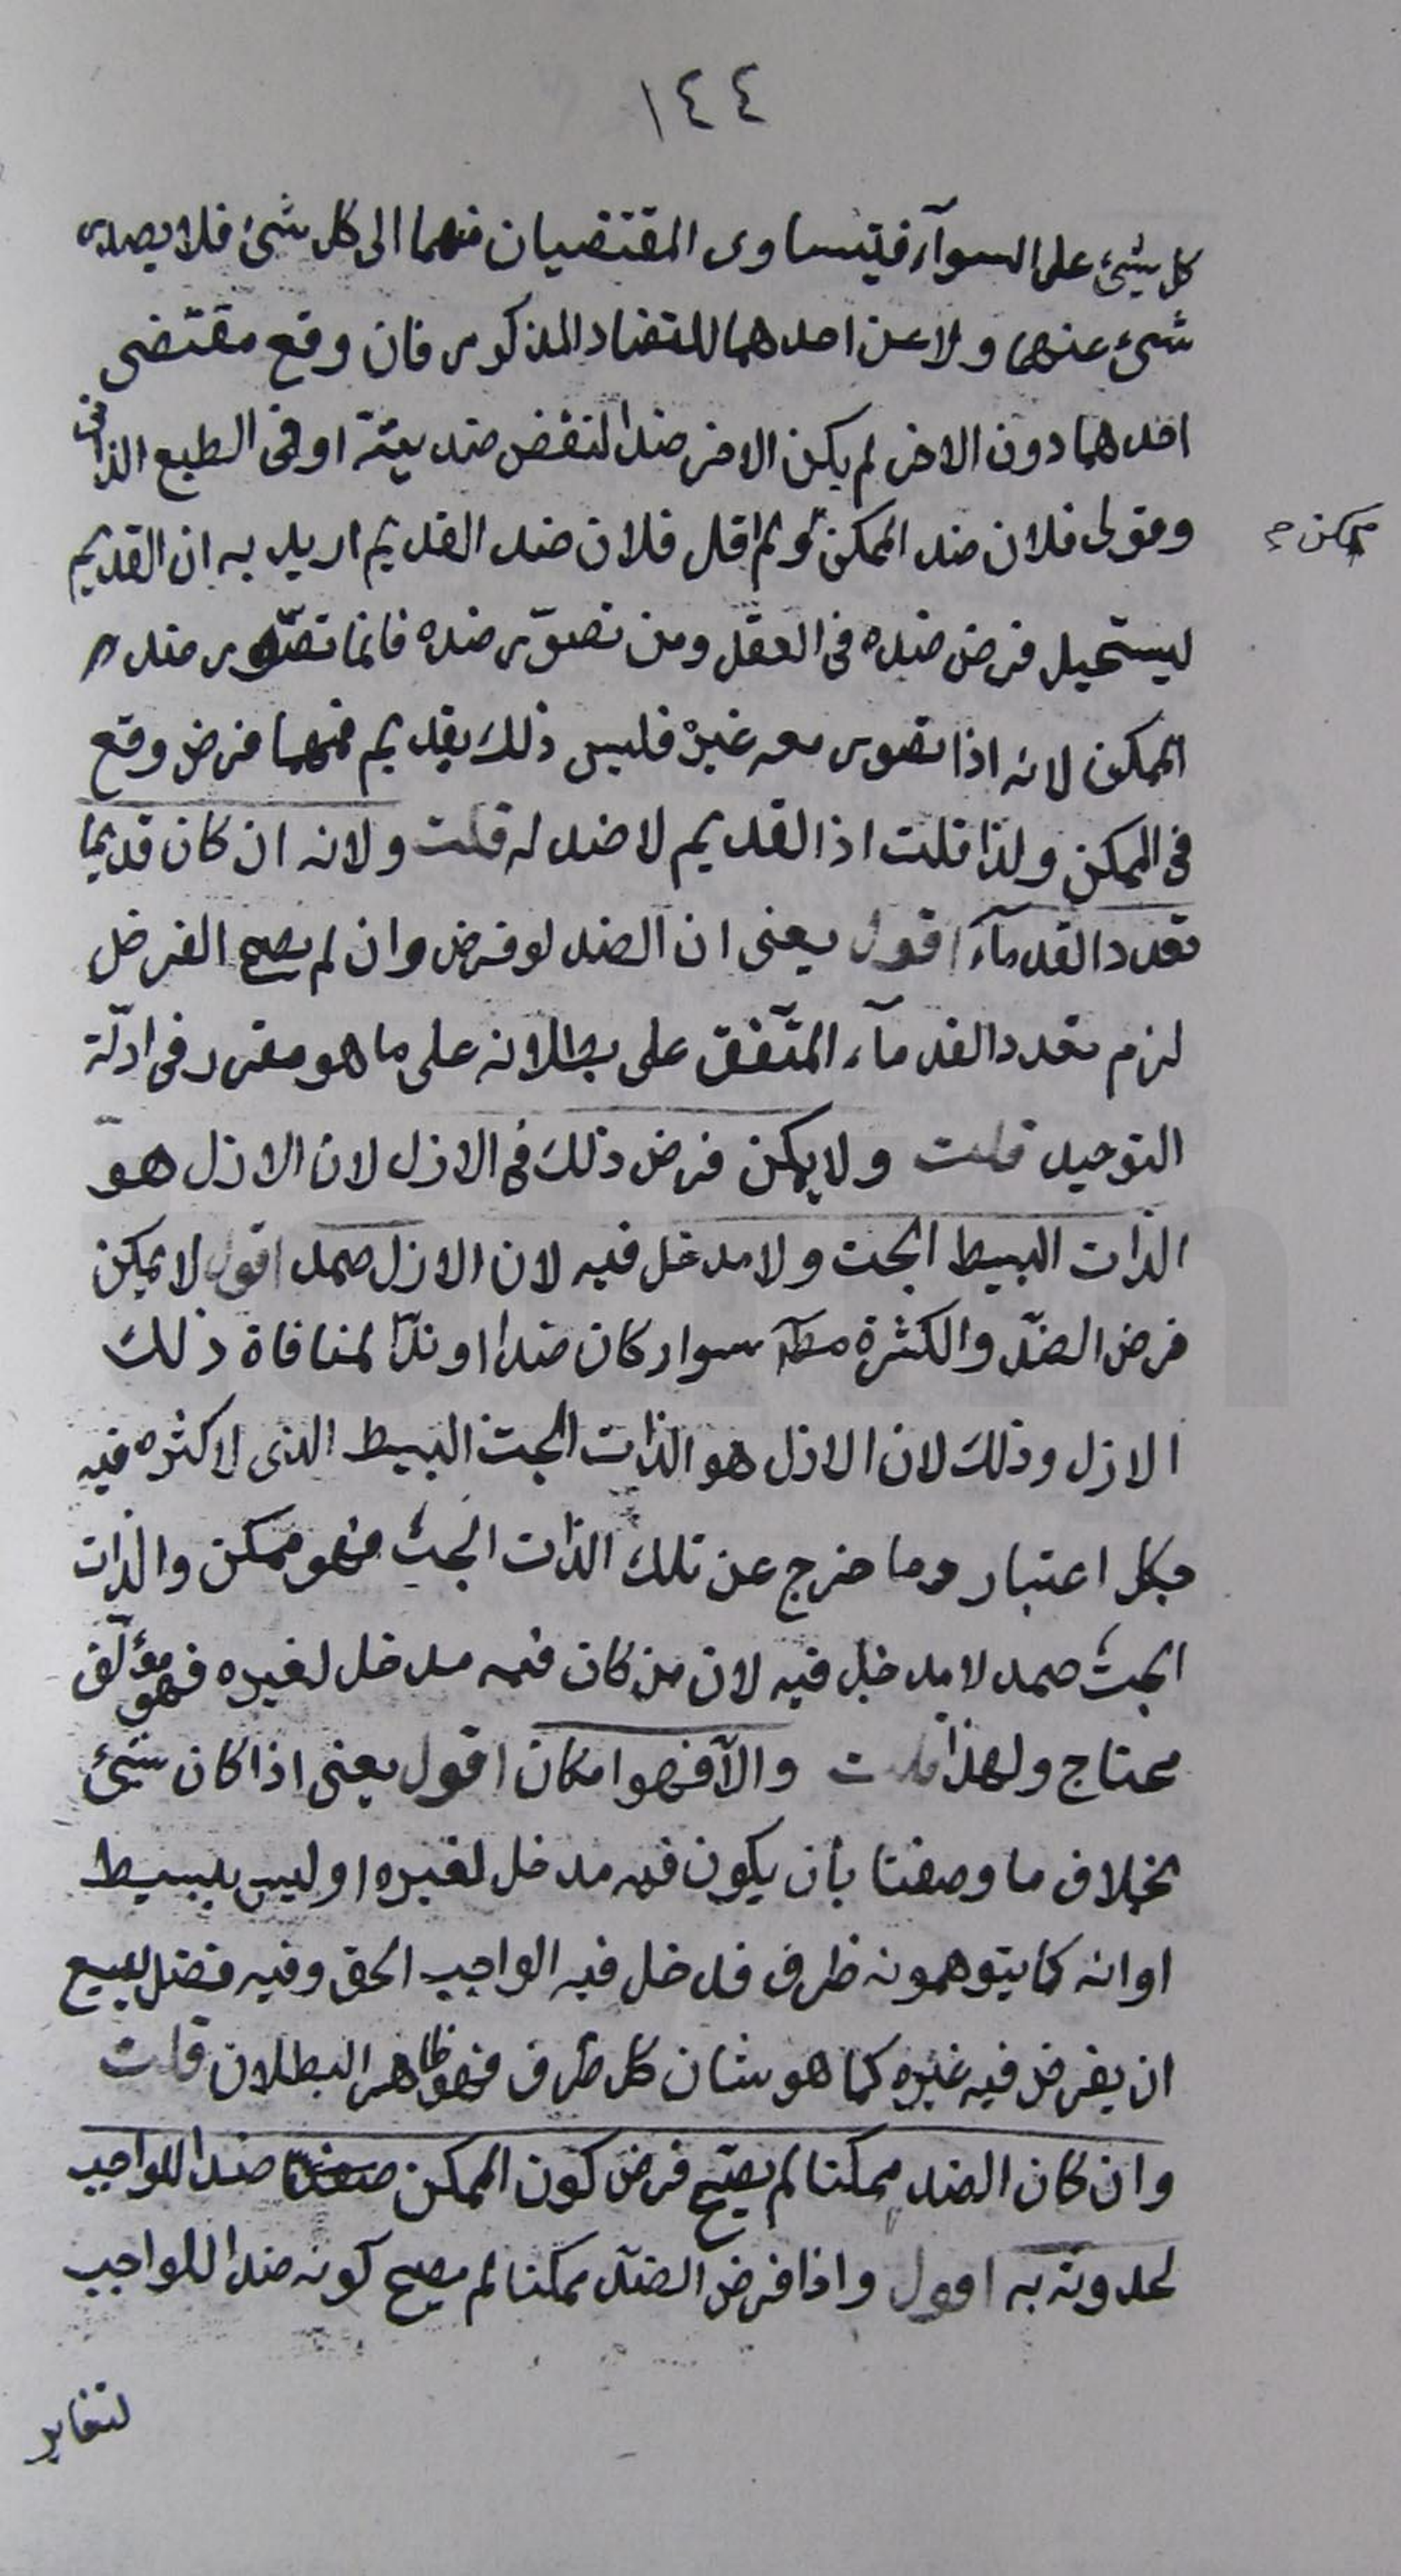 ١٤٤
كل شئ على السوآء فيتساوى المقتضيان منهما الى كل شئ فلا يصدر
شئ عنهما ولا عن احدهما للتضاد المذكور فان وقع مقتضى
احدهما دون الاخر لم يكن الاخر ضدا لنقض ضديته او فى الطبع الذاتى
وقولى فلان ضد الممكن ولم اقل فلان ضد القديم اريد به ان القديم
ممكن
ليستحيل فرض ضده فى العقل ومن تصوّر ضده فانما تصوّر ضد
الممكن لانه اذا تصور معه غيره فليس ذلك بقديم فمهما فرض وقع
فى الممكن ولذا قلت اذ القديم لا ضد له قلت ولانه ان كان قديما
تعدد القدمآء اقول يعنى ان الضد لو فرض وان لم يصح الفرض
لزم تعدد القدمآء المتّفق على بطلانه على ما هو مقرر فى ادلّة
التوحيد قلت ولا يمكن فرض ذلك فى الازل لان الازل هو
الذات البسيط البحت ولا مدخل فيه لان الازل صمد اقول لا يمكن
فرض الضدّ والكثرة مطلقا سواء كان ضدا او ندّا لمنافاة ذلك
الازل وذلك لان الازل هو الذات البحت البسيط الذى لا كثره فيه
بكل اعتبار وما خرج عن تلك الذات البحث فهو ممكن والذات
البحث صمد لا مدخل فيه لان من كان فيه مدخل لغيره فهو مؤلّف
محتاج ولهذا قلت والّا فهو امكان اقول يعنى اذا كان شئ
بخلاف ما وصفنا بأن يكون فيه مدخل لغيره او ليس ببسيط
او انه كما يتوهمونه ظرف قد خل فيه الواجب الحق وفيه فضل يسع
ان يفرض فيه غيره كما هو شان كل ظرف فهو ظاهر البطلان قلت
وان كان الضد ممكنا لم يصحّ فرض كون الممكن ضدا للواجب
لحدوثه به اقول واذا فرض الضدّ ممكنا لم يصح كونه ضدا للواجب
لتغاير